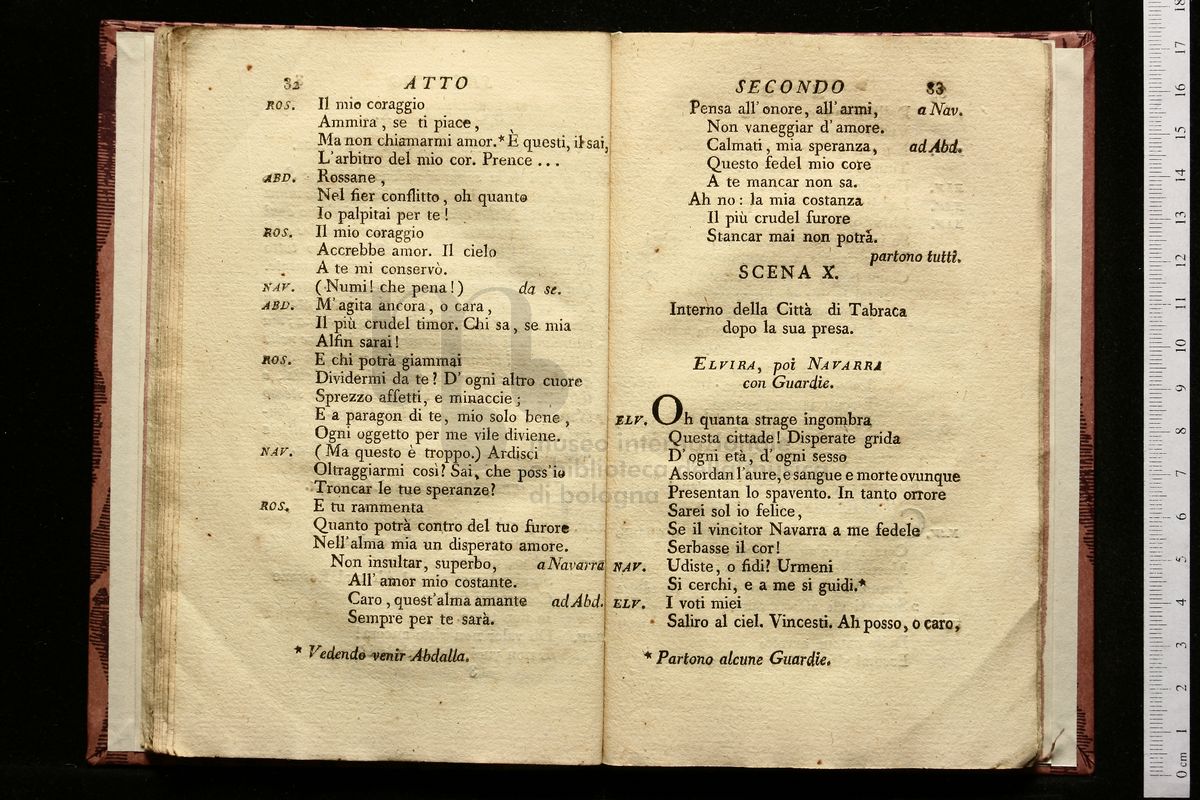 32 ATTO
ROS. Il mio coraggio
Ammira, se ti piace,
Ma non chiamarmi amor.* È questi, il sai,
L'arbitro del mio cor. Prence ...
ABD. Rossane,
Nel fier conflitto, oh quanto
Io palpitai per te!
ROS. Il mio coraggio
Accrebbe amor. Il cielo
A te mi conservò.
NAV. (Numi! che pena!) da se.
ABD. M'agita ancora, o cara,
Il più crudel timor. Chi sa, se mia
Alfin sarai!
ROS. E chi potrà giammai
Dividermi da te? D'ogni altro cuore
Sprezzo affetti, e minaccie;
E a paragon di te, mio solo bene,
Ogni oggetto per me vile diviene.
NAV. (Ma questo è troppo.) Ardisci
Oltraggiarmi così? Sai, che poss'io
Troncar le tue speranze?
ROS. E tu rammenta
Quanto potrà contro del tuo furore
Nell'alma mia un disperato amore.
Non insultar, superbo, a Navarra
All'amor mio costante.
Caro, quest'alma amante ad Abd.
Sempre per te sarà.
* Vedendo venir Abdalla.
SECONDO 33
Pensa all'onore, all'armi, a Nav.
Non vaneggiar d'amore.
Calmati, mia speranza, ad Abd.
Questo fedel mio core
A te mancar non sa.
Ah no: la mia costanza
Il più crudel furore
Stancar mai non potrà.
partono tutti.
SCENA X.
Interno della Città di Tabraca
dopo la sua presa.
ELVIRA, poi NAVARRA
con Guardie.
ELV. Oh quanta strage ingombra
Questa cittade! Disperate grida
D'ogni età, d'ogni sesso
Assordan l'aure, e sangue e morte ovunque
Presentan lo spavento. In tanto orrore
Sarei sol io felice,
Se il vincitor Navarra a me fedele
Serbasse il cor!
NAV. Udiste, o fidi? Urmeni
Si cerchi, e a me si guidi.*
ELV. I voti miei
Saliro al ciel. Vincesti. Ah posso, o caro,
* Partono alcune Guardie.
museo internazionale
e biblioteca della musica
di bologna
0 cm 1 2 3 4 5 6 7 8 9 10 11 12 13 14 15 16 17 18